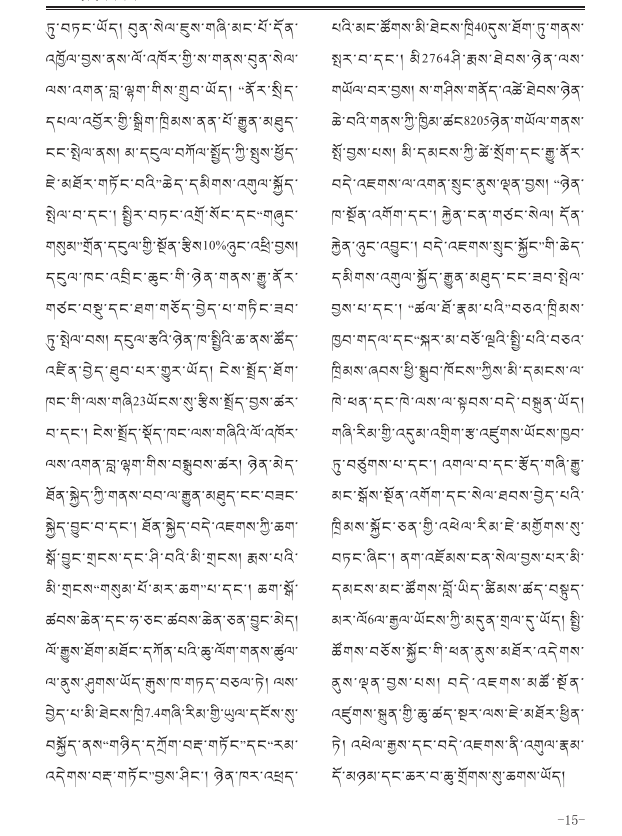 ཏུ་བཏང་ཡོད། བུན་སེལ་ཇུས་གཞི་མང་པོ་དོན་
འཁྱོལ་བྱས་ནས་ལོ་འཁོར་གྱི་ས་གནས་བུན་སེལ་
ལས་འགན་བླ་ལྷག་གིས་གྲུབ་ཡོད། “ནོར་སྲིད་
དཔལ་འབྱོར་གྱི་སྒྲིག་ཁྲིམས་ནན་པོ་རྒྱུན་མཐུད་
ངང་སྤེལ་ནས། མ་དངུལ་བཀོལ་སྤྱོད་ཀྱི་སྤུས་ཕྱོད་
ཇེ་མཐོར་གཏོང་བའི་”ཆེད་དམིགས་འགུལ་སྐྱོད་
སྤེལ་བ་དང་། སྤྱིར་བཏང་འགྲོ་སོང་དང་“གཞུང་
གསུམ”གྲོན་དངུལ་གྱི་སྔོན་རྩིས10%ཉུང་འཕྲི་བྱས།
དངུལ་ཁང་འབྲིང་ཆུང་གི་ཉེན་གནས་རྒྱུ་ནོར་
གཙང་བསྡུ་དང་ཐག་གཅོད་བྱེད་པ་གཏིང་ཟབ་
ཏུ་སྤེལ་བས། དངུལ་རྩའི་ཉེན་ཁ་སྤྱིའི་ཆ་ནས་ཚོད་
འཛིན་བྱེད་ཐུབ་པར་གྱུར་ཡོད། ངེས་སྤྲོད་ཐོག་
ཁང་གི་ལས་གཞི23ཡོངས་སུ་རྩིས་སྤྲོད་བྱས་ཚར་
བ་དང་། ངེས་སྤྲོད་སྡོད་ཁང་ལས་གཞིའི་ལོ་འཁོར་
ལས་འགན་བླ་ལྷག་གིས་བསྒྲུབས་ཚར། ཉེན་མེད་
ཐོན་སྐྱེད་ཀྱི་གནས་བབ་ལ་རྒྱུན་མཐུད་ངང་བཟང་
སྐྱེད་བྱུང་བ་དང་། ཐོན་སྐྱེད་བདེ་འཇགས་ཀྱི་ཆག་
སྒོ་བྱུང་གྲངས་དང་ཤི་བའི་མི་གྲངས། རྨས་པའི་
མི་གྲངས“གསུམ་པོ་མར་ཆག”པ་དང་། ཆག་སྒོ་
ཚབས་ཆེན་དང་ཧ་ཅང་ཚབས་ཆེན་ཅན་བྱུང་མེད།
ལོ་རྒྱུས་ཐོག་མཐོང་དཀོན་པའི་ཆུ་ལོག་གནས་ཚུལ་
ལ་ནུས་ཤུགས་ཡོད་རྒུས་ཁ་གཏད་བཅལ་ཏེ། ལས་
བྱེད་པ་མི་ཐེངས་ཁྲི7.4གཞི་རིམ་གྱི་ཡུལ་དངོས་སུ་
བསྐྱོད་ནས“གཉིད་དཀྲོག་བརྡ་གཏོང”དང“རམ་
འདེགས་བརྡ་གཏོང”བྱས་ཤིང་། ཉེན་ཁར་འཕྲད་
པའི་མང་ཚོགས་མི་ཐེངས་ཁྲི40དུས་ཐོག་ཏུ་གནས་
སྤར་བ་དང་། མི2764ཤི་རྨས་ཐེབས་ཉེན་ལས་
གཡོལ་བར་བྱས། ས་གཤིས་གནོད་འཚེ་ཐེབས་ཉེན་
ཆེ་བའི་གནས་ཀྱི་ཁྱིམ་ཚང8205ཉེན་གཡོལ་གནས་
སྤོ་བྱས་པས། མི་དམངས་ཀྱི་ཚེ་སྲོག་དང་རྒྱུ་ནོར་
བདེ་འཇགས་ལ་འགན་སྲུང་ནུས་ལྡན་བྱས། “ཉེན་
ཁ་སྔོན་འགོག་དང་། རྐྱེན་ངན་གཙང་སེལ། དོན་
རྐྱེན་ཉུང་འབྱུང་། བདེ་འཇགས་སྲུང་སྐྱོང”གི་ཆེད་
དམིགས་འགུལ་སྐྱོད་རྒྱུན་མཐུད་ངང་ཟབ་སྤེལ་
བྱས་པ་དང་། “ཚལ་ཐོ་རྣམ་པའི”བཅའ་ཁྲིམས་
ཁྱབ་གདལ་དང“སྐར་མ་བཅོ་ལྔའི་སྤྱི་པའི་བཅའ་
ཁྲིམས་ཞབས་ཕྱི་སྒྲུབ་ཁོངས”ཀྱིས་མི་དམངས་ལ་
ཁེ་ཕན་དང་ཁེ་ལས་ལ་སྟབས་བདེ་བསྐྲུན་ཡོད།
གཞི་རིམ་གྱི་འདུམ་འགྲིག་རྩ་འཛུགས་ཡོངས་ཁྱབ་
ཏུ་བཙུགས་པ་དང་། འགལ་བ་དང་རྩོད་གཞི་རྒྱུ་
མང་སྒོས་སྔོན་འགོག་དང་སེལ་ཐབས་བྱེད་པའི་
ཁྲིམས་སྐྱོང་ཅན་གྱི་འཕེལ་རིམ་ཇེ་མགྱོགས་སུ་
བཏང་ཞིང་། ནག་འཇོམས་ངན་སེལ་བྱས་པར་མི་
དམངས་མང་ཚོགས་བློ་ཡིད་ཚིམས་ཚད་བསྟུད་
མར་ལོ6ལ་རྒྱལ་ཡོངས་ཀྱི་མདུན་གྲལ་དུ་ཡོད། སྤྱི་
ཚོགས་བཅོས་སྐྱོང་གི་ཕན་ནུས་མཐོར་འདེགས་
ནུས་ལྡན་བྱས་པས། བདེ་འཇགས་མཚོ་སྔོན་
འཛུགས་སྐྲུན་གྱི་ཆུ་ཚད་སྔར་ལས་ཇེ་མཐོར་ཕྱིན་
ཏེ། འཕེལ་རྒྱས་དང་བདེ་འཇགས་ནི་འགུལ་རྣམ་
དོ་མཉམ་དང་ཆར་བ་ཆུ་གྲོགས་སུ་ཆགས་ཡོད།
-15-